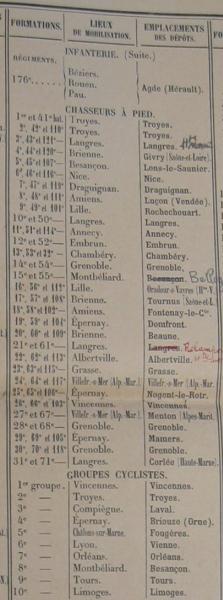 FORMATIONS. LIEUX DE MOBILISATION. EMPLACEMENTS DES DÉPÔTS.
INFANTERIE. (Suite.)
RÉGIMENTS.
176e Béziers. Rouen. Pau. Agde (Hérault).
CHASSEURS À PIED.
1er et 41e bat. Troyes. Troyes.
2e, 42e et 110e Troyes. Troyes.
3e, 43e et 124e Langres. Langres.
4e, 44e et 120e Brienne. Givry (Saône-et-Loire).
5e, 45e et 107e Besançon. Lons-le-Saunier.
6e, 46e et 116e Nice. Nice.
7e, 47e et 119e Draguignan. Draguignan.
8e, 48e et 111e Amiens. Luçon (Vendée).
9e, 49e et 101e Lille. Rochechouart.
10e et 50e Langres. Langres.
11e, 51e et 114e Annecy. Annecy.
12e et 52e Embrun. Embrun.
13e, 53e et 122e Chambéry. Chambéry.
14e et 54e Grenoble. Grenoble.
15e et 55e Montbéliard. Besançon.
16e, 56e et 112e Lille.
17e, 57e et 108e Brienne. Tournus (Saône-et-L
18e, 58e et 102e Amiens. Fontenay-le-Cte
19e, 59e et 104e Épernay. Domfront.
20e, 60e et 109e Brienne. Beaune.
21e et 61e Langres. Langres.
22e, 62e et 113e Albertville. Albertville.
23e, 63e et 115e Grasse. Grasse.
24e, 64e et 117e Villefr.-s-Mer (Alp.-Mar.) Villefr.-s-Mer (Alp.-Mar.
25e, 65e et 106e Épernay. Nogent-le-Rotr.
26e, 66e et 103e Vincennes. Vincennes.
27e et 67e Villefr.-s-Mer (Alp.-Mar.) Menton (Alpes-Marit.
28e et 68e Grenoble. Grenoble.
29e, 69e et 105e Épernay. Mamers.
30e, 70e et 118e Grenoble. Grenoble.
31e et 71e Langres. Corlée (Haute-Marne).
GROUPES CYCLISTES.
1er groupe. Vincennes. Vincennes.
2e — Troyes. Troyes.
3e — Compiègne. Laval.
4e — Épernay. Briouze (Orne).
5e — Châlons-sur-Marne. Fougères.
6e — Lyon. Vienne.
7e — Orléans. Orléans.
8e — Montbéliard. Besançon.
9e — Tours. Tours.
10e — Limoges. Limoges.